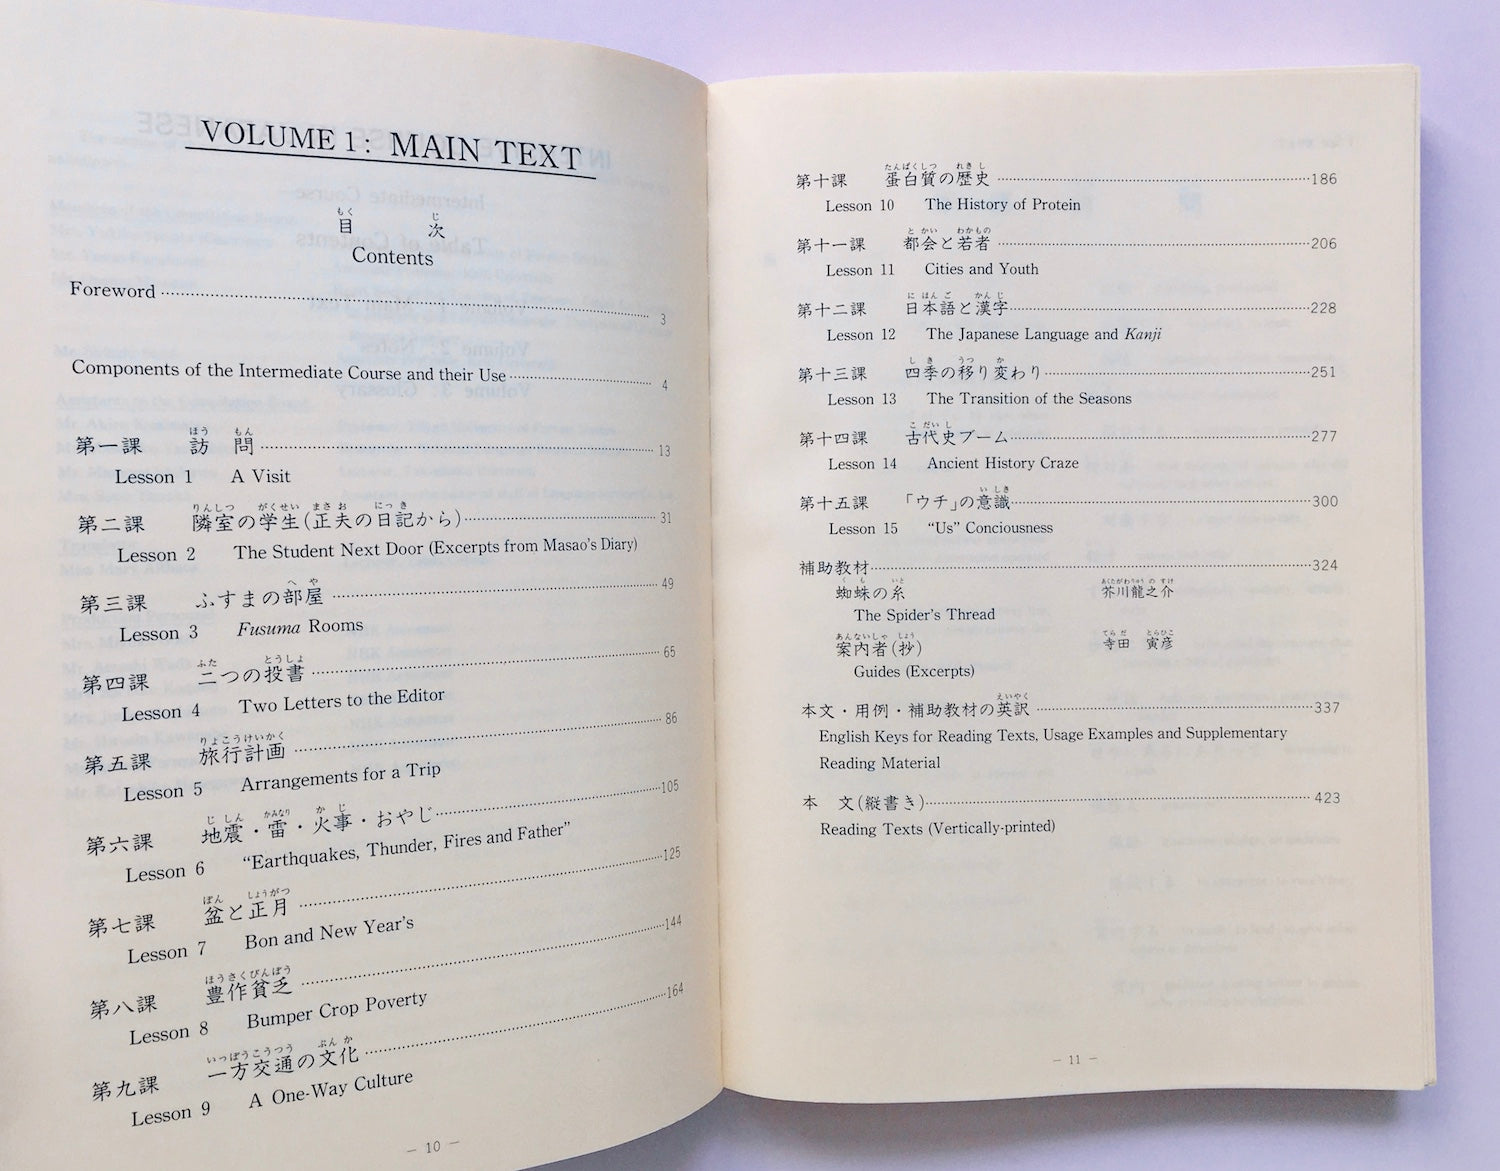 VOLUME 1: MAIN TEXT
もく じ
目 次
Contents
Foreword 3
Components of the Intermediate Course and their Use 4
ほう もん
第一課 訪 問 13
Lesson 1 A Visit
りんしつ がくせい まさ お にっ き
第二課 隣室の学生(正夫の日記から) 31
Lesson 2 The Student Next Door (Excerpts from Masao's Diary)
へ や
第三課 ふすまの部屋 49
Lesson 3 Fusuma Rooms
ふた とうしょ
第四課 二つの投書 65
Lesson 4 Two Letters to the Editor
りょこうけいかく
第五課 旅行計画 86
Lesson 5 Arrangements for a Trip
じ しん かみなり か じ
第六課 地震・雷・火事・おやじ 105
Lesson 6 “Earthquakes, Thunder, Fires and Father”
ぼん しょうがつ
第七課 盆と正月 125
Lesson 7 Bon and New Year's
ほうさくびんぼう
第八課 豊作貧乏 144
Lesson 8 Bumper Crop Poverty
いっぽうこうつう ぶん か
第九課 一方交通の文化 164
Lesson 9 A One-Way Culture
— 10 —
たんぱくしつ れき し
第十課 蛋白質の歴史 186
Lesson 10 The History of Protein
と かい わかもの
第十一課 都会と若者 206
Lesson 11 Cities and Youth
に ほん ご かん じ
第十二課 日本語と漢字 228
Lesson 12 The Japanese Language and Kanji
し き うつ か
第十三課 四季の移り変わり 251
Lesson 13 The Transition of the Seasons
こ だい し
第十四課 古代史ブーム 277
Lesson 14 Ancient History Craze
い しき
第十五課 「ウチ」の意識 300
Lesson 15 “Us” Conciousness
補助教材 324
く も いと あくたがわりゅう の すけ
蜘蛛の糸 芥川龍之介
The Spider's Thread
あんないしゃ しょう てら だ とらひこ
案内者(抄) 寺田 寅彦
Guides (Excerpts)
えいやく
本文・用例・補助教材の英訳 337
English Keys for Reading Texts, Usage Examples and Supplementary
Reading Material
本 文(縦書き) 423
Reading Texts (Vertically-printed)
— 11 —